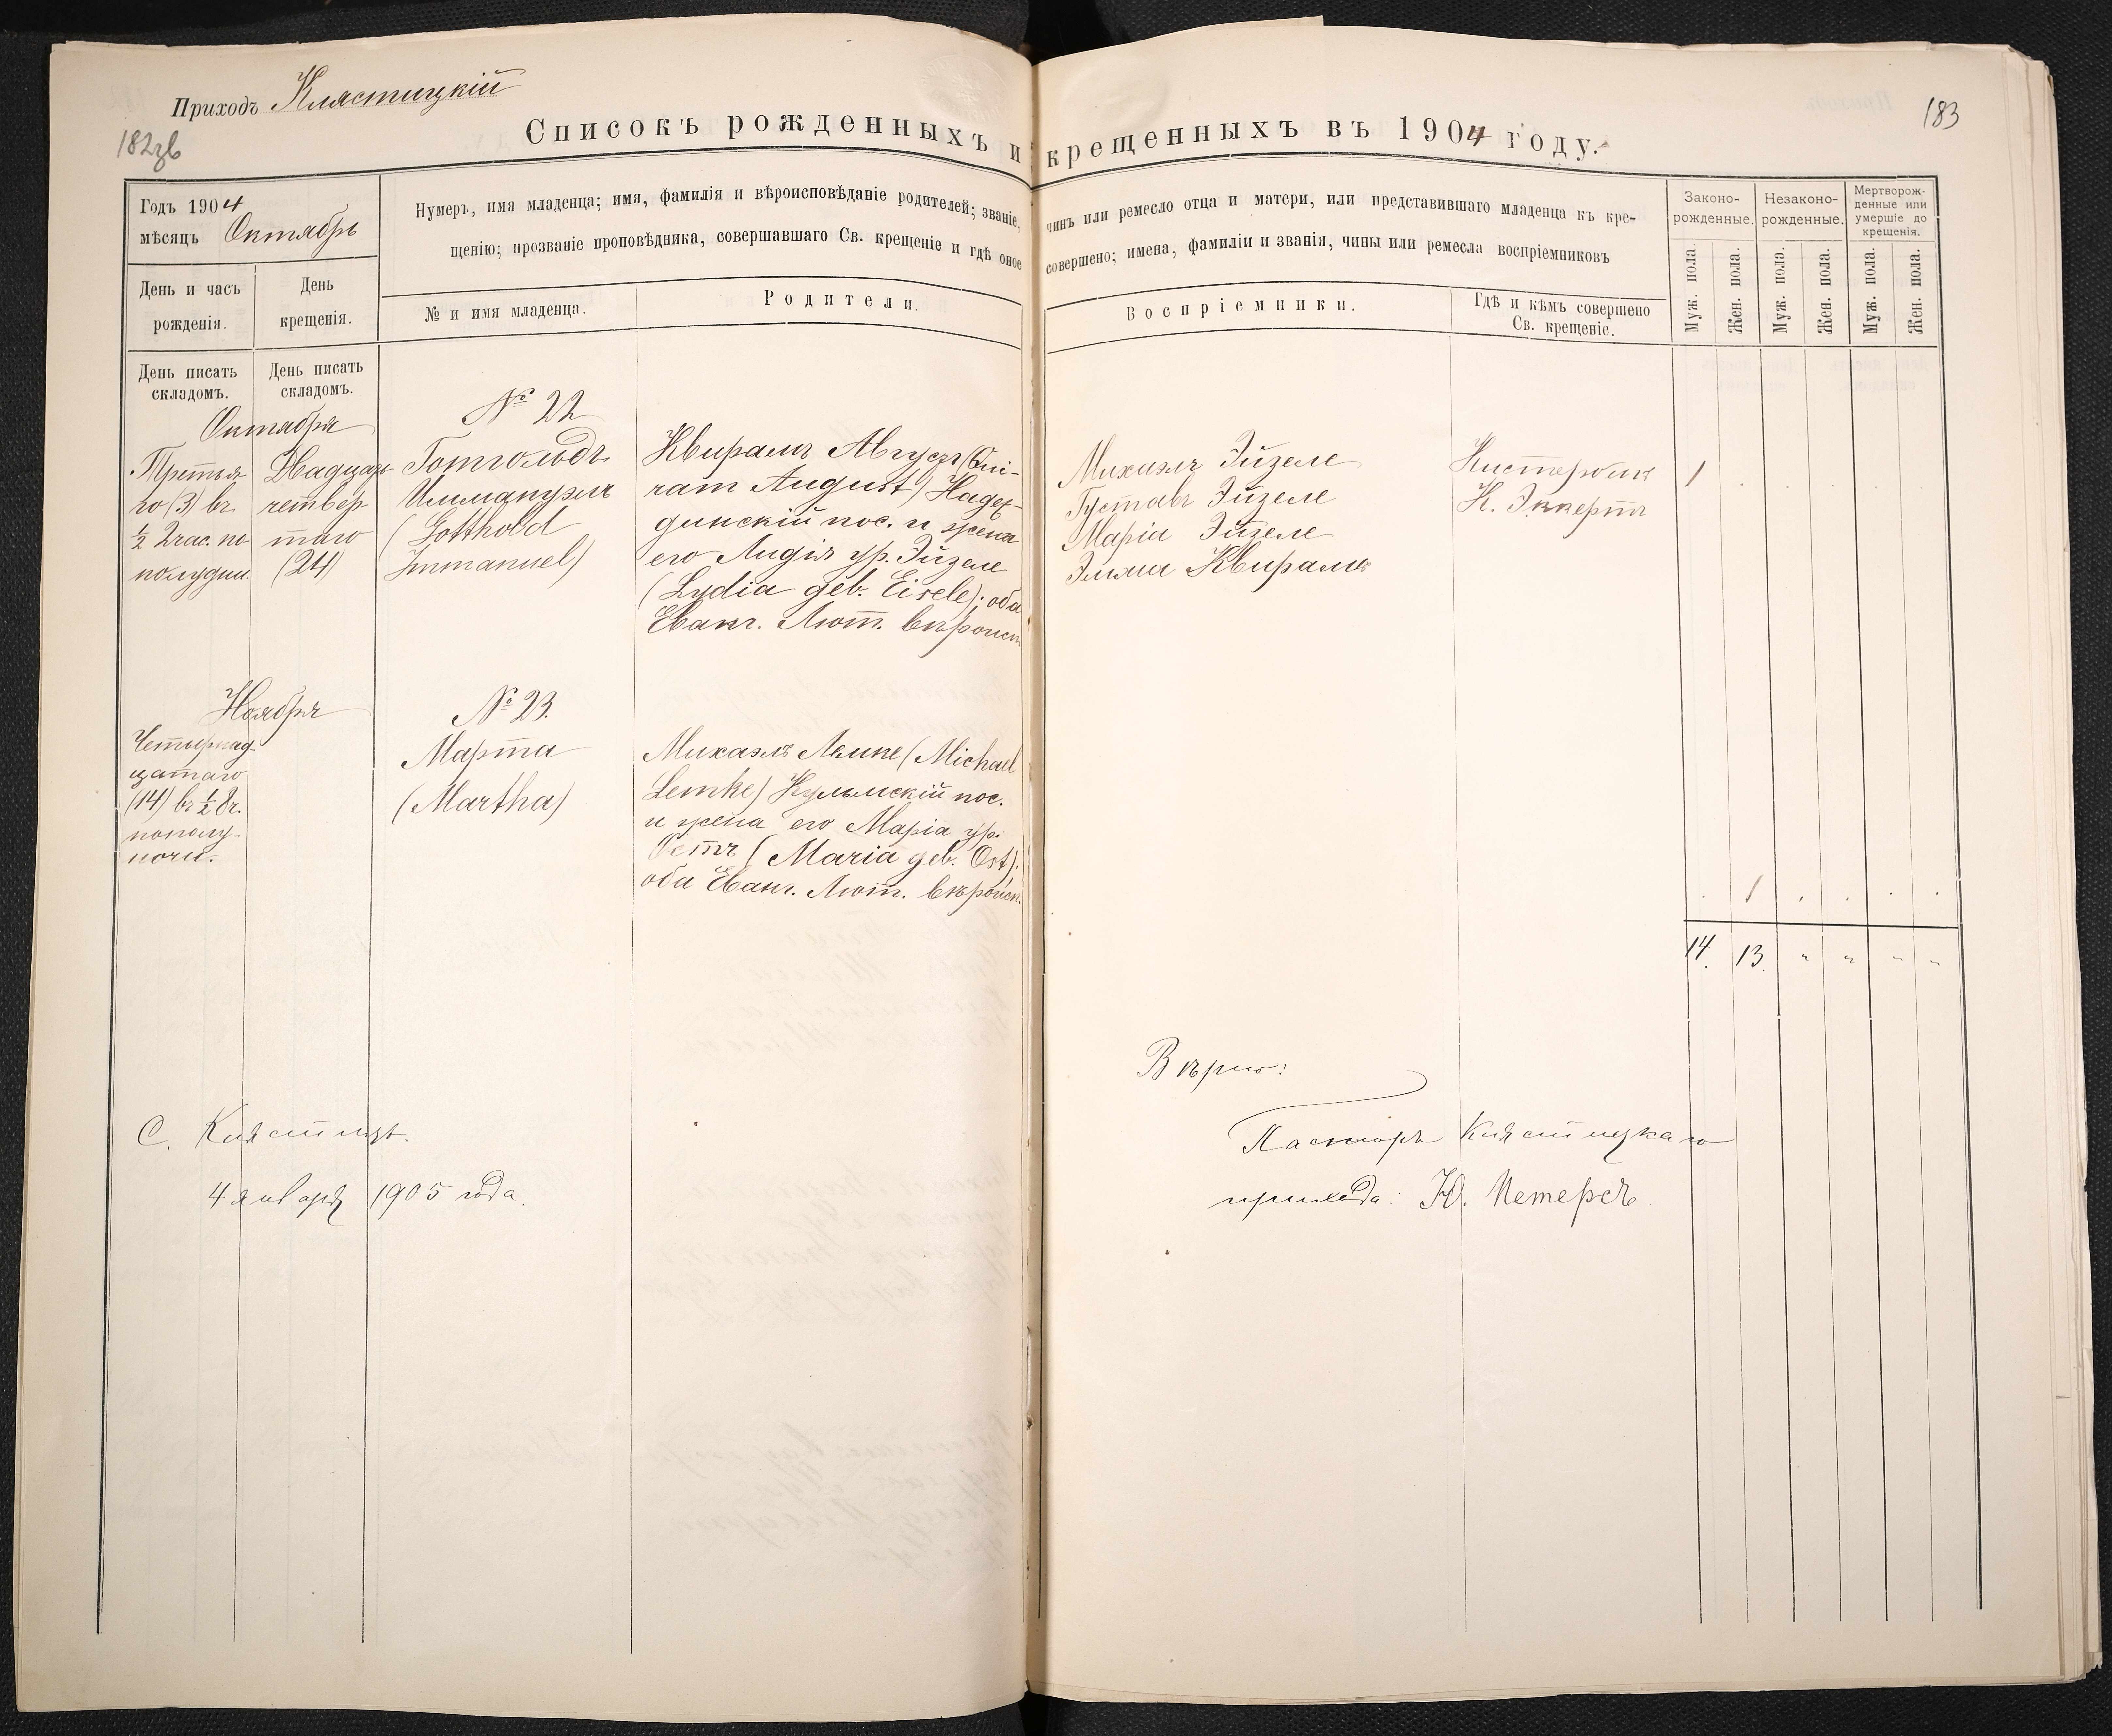 Приходъ Клястицкій
182зв
183
Списокъ рожденныхъ и крещенныхъ въ 1904 году.
Годъ 1904
мѣсяцъ Октябрь
Нумеръ, имя младенца; имя, фамилія и вѣроисповѣданіе родителей; званіе, чинъ или ремесло отца и матери, или представившаго младенца къ кре-
щенію; прозваніе проповѣдника, совершавшаго Св. крещеніе и гдѣ оное совершено; имена, фамиліи и званія, чины или ремесла воспріемниковъ
Законо-
рожденные.
Незаконо-
рожденные.
Мертворож-
денные или
умершіе до
крещенія.
День и часъ
рожденія.
День
крещенія.
№ и имя младенца.
Родители.
Воспріемники.
Гдѣ и кѣмъ совершено
Св. крещеніе.
Муж. пола.
Жен. пола.
Муж. пола.
Жен. пола.
Муж. пола.
Жен. пола.
День писать
складомъ.
День писать
складомъ.
Октября
Третья-
го (3) въ
½ 2 час. по
полудни.
Двадцать
четвер
таго
(24)
№ 22
Готгольдъ
Иммануэлъ
(Gotthold
Immanuel)
Квирамъ Августъ (Qui-
ram August) Надеж-
динскій пос. и жена
его Лидія ур. Эйзеле
(Lydia geb. Eisele); оба
Еванг. Лют. вѣроисп
Михаэлъ Эйзеле
Густавъ Эйзеле
Маріи Эйзеле
Эмма Квирамъ
Кистеромъ
К. Эккертъ
1
Ноября
Четырнад-
цатаго
(14) въ ½ 8 ч.
пополу-
ночи.
№ 23.
Марта
(Martha)
Михаэлъ Лемке (Michael
Lemke) Кульмскій пос.
и жена его Марія ур.
Остъ (Maria geb. Ost);
оба Еванг. Лют. вѣроисп.
1
14. 13. " " " "
Вѣрно:
С. Клястицъ.
4 января 1905 года.
Пасторъ Клястицкаго
прихода: Ю. Петерсъ